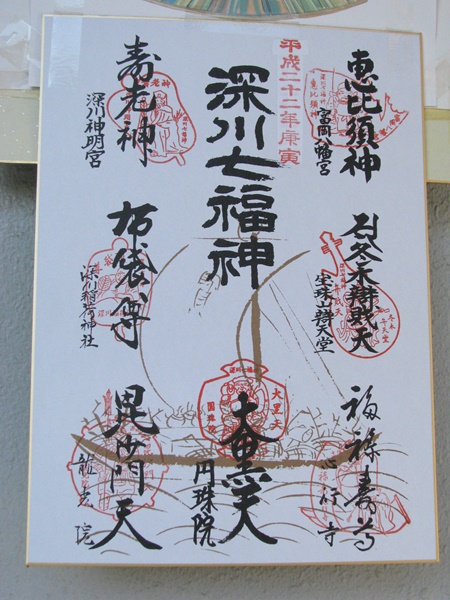 恵比須神
富岡八幡宮
冬木弁財天
福禄寿尊
心行寺
平成二十二年庚寅
深川七福神
大黒天
円珠院
寿老神
深川神明宮
布袋尊
深川稲荷神社
毘沙門天
龍光院
大黒天
圓珠院